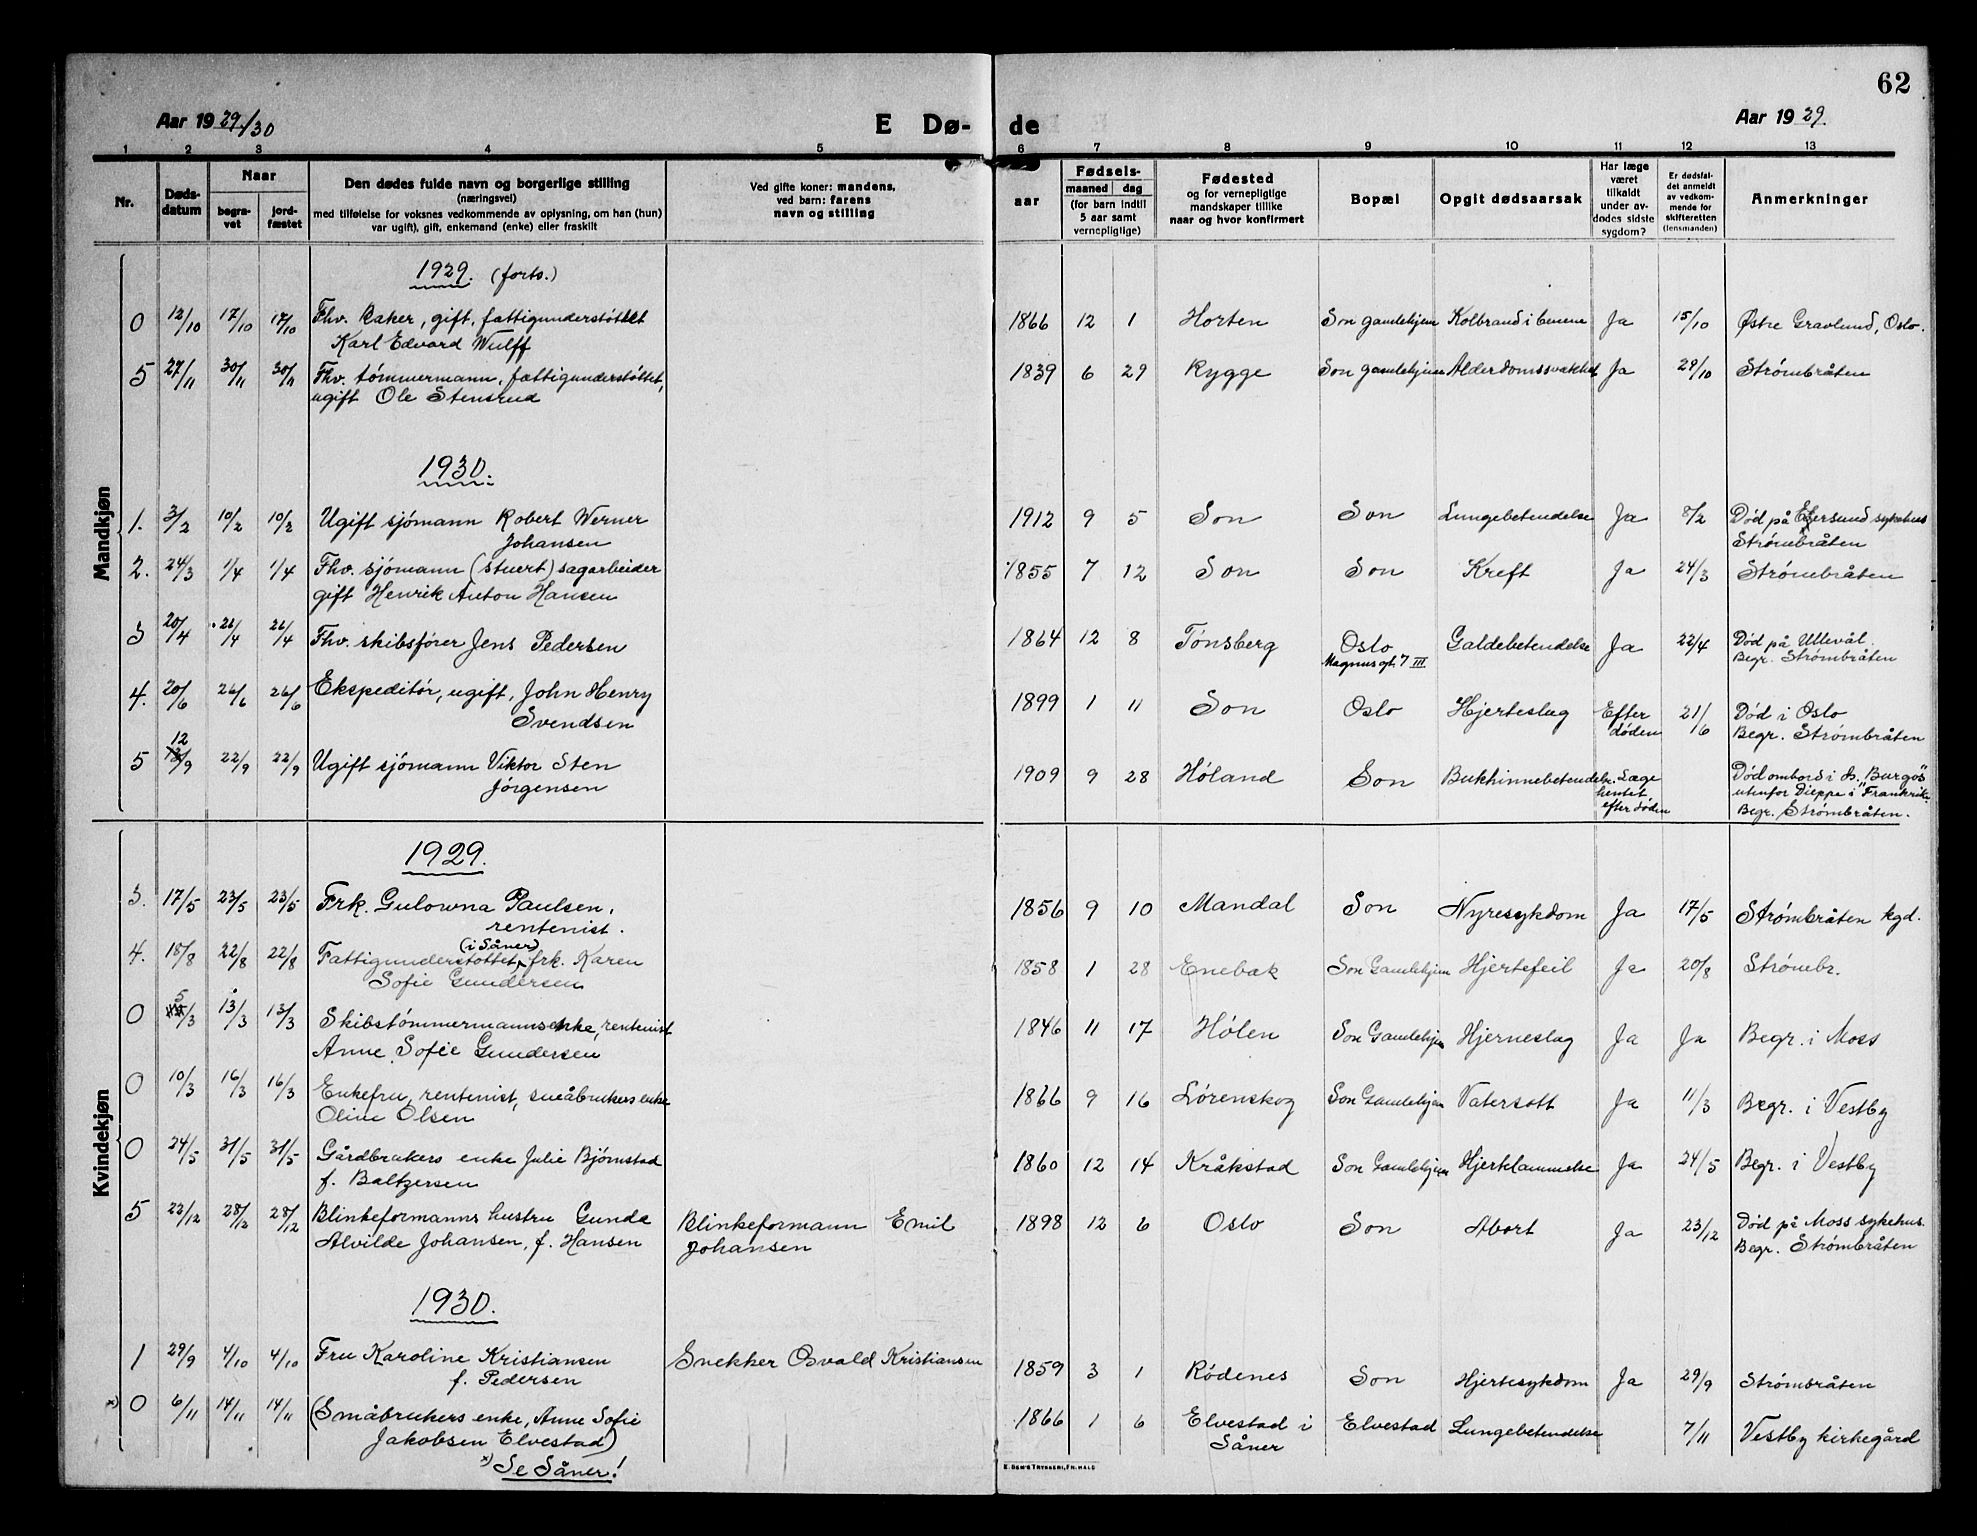 62
Aar 1929/30
E Dø-
de
Aar 1929.
1 2 3 4 5 6 7 8 9 10 11 12 13
Nr.
Døds-
datum
Naar
begra-
vet
jord-
fæstet
Den dødes fulde navn og borgerlige stilling
(næringsvei)
med tilføielse for voksnes vedkommende av oplysning, om han (hun)
var ugift), gift, enkemand (enke) eller fraskilt
Ved gifte koner: mandens,
ved barn: farens
navn og stilling
aar
Fødsels-
maaned dag
(for barn indtil
5 aar samt
vernepligtige)
Fødested
og for vernepligtige
mandskaper tillike
naar og hvor konfirmert
Bopæl
Opgit dødsaarsak
Har læge
været
tilkaldt
under av-
dødes sidste
sygdom?
Er dødsfal-
det anmeldt
av vedkom-
mende for
skifteretten
(lensmanden)
Anmerkninger
Mandkjøn
1929. (forts.)
0 12/10 17/10 17/10 Fhv. Baker, gift, fattigunderstøttet 1866 12 1 Horten Son gamlehjem Kolbrand i benene Ja 15/10 Østre Gravlund, Oslo.
Karl Edvard Wulff
5 27/11 30/11 30/11 Fhv. tømmermann, fattigunderstøttet, 1839 6 29 Rygge Son gamlehjem Alderdomssvakhet Ja 29/10 Strømbråten
ugift Ole Stensrud
1930.
1. 3/2 10/2 10/2 Ugift sjømann Robert Werner 1912 9 5 Son Son Lungebetendelse Ja 8/2 Død på Egersund sykehus
Johansen Strømbråten
2. 24/3 1/4 1/4 Fhv. sjømann (stuert) sagarbeider 1855 7 12 Son Son Kreft Ja 24/3 Strømbråten
gift Henrik Anton Hansen
3 20/4 26/4 26/4 Fhv. skibsfører Jens Pedersen 1864 12 8 Tønsberg Oslo Galdebetendelse Ja 22/4 Død på Ullevål.
Magnusgt. 7 III Begr. Strømbråten
4. 20/6 26/6 26/6 Ekspeditør, ugift, John Henry 1899 1 11 Son Oslo Hjerteslag Efter 21/6 Død i Oslo
Svendsen døden Begr. Strømbråten
12
5 13/9 22/9 22/9 Ugift sjømann Viktor Sten 1909 9 28 Høland Son Bukhinnebetendelse. Læge Død ombord i ds. "Burgos"
Jørgensen hentet utenfor Dieppe i Frankrike
efter døden Begr. Strømbråten.
Kvindekjøn
1929.
3. 17/5 23/5 23/5 Frk. Gulowna Paulsen, 1856 9 10 Mandal Son Nyresykdom Ja 17/5 Strømbråten kgd.
rentenist.
(i Såner)
4. 18/8 22/8 22/8 Fattigunderstøttet, frk. Karen 1858 1 28 Enebak Son Gamlehjem Hjertefeil Ja 20/8 Strømbr.
Sofie Gundersen
0 5/3 13/3 13/3 Skibstømmermannsenke, rentenist 1846 11 17 Hølen Son Gamlehjem Hjerneslag Ja Ja Begr. i Moss
Anne Sofie Gundersen
0 10/3 16/3 16/3 Enkefru, rentenist, småbrukers enke 1866 9 16 Lørenskog Son Gamlehjem Vatersott Ja 11/3 Begr. i Vestby
Oline Olsen
0 24/5 31/5 31/5 Gårdbrukers enke Julie Bjørnstad 1860 12 14 Kråkstad Son Gamlehjem Hjerklammelse Ja 24/5 Begr. i Vestby
f. Baltzersen
5 22/12 28/12 28/12 Blinkeformanns hustru Gunda Blinkeformann Emil 1898 12 6 Oslo Son Abort Ja 23/12 Død på Moss sykehus.
Alvilde Johansen, f. Hansen Johansen Begr. Strømbråten
1930.
1 29/9 4/10 4/10 Fru Karoline Kristiansen Snekker Osvald Kristiansen 1859 3 1 Rødenes Son Hjertesykdom Ja 29/9 Strømbråten
f. Pedersen
x) 0 6/11 14/11 14/11 (Småbrukers enke, Anne Sofie 1866 1 6 Elvestad i Elvestad Lungebetendelse 7/11 Vestby kirkegård
Jakobsen Elvestad) Såner
x) Se Såner!
E. SEM'S TRYKKERI, FR.HALD